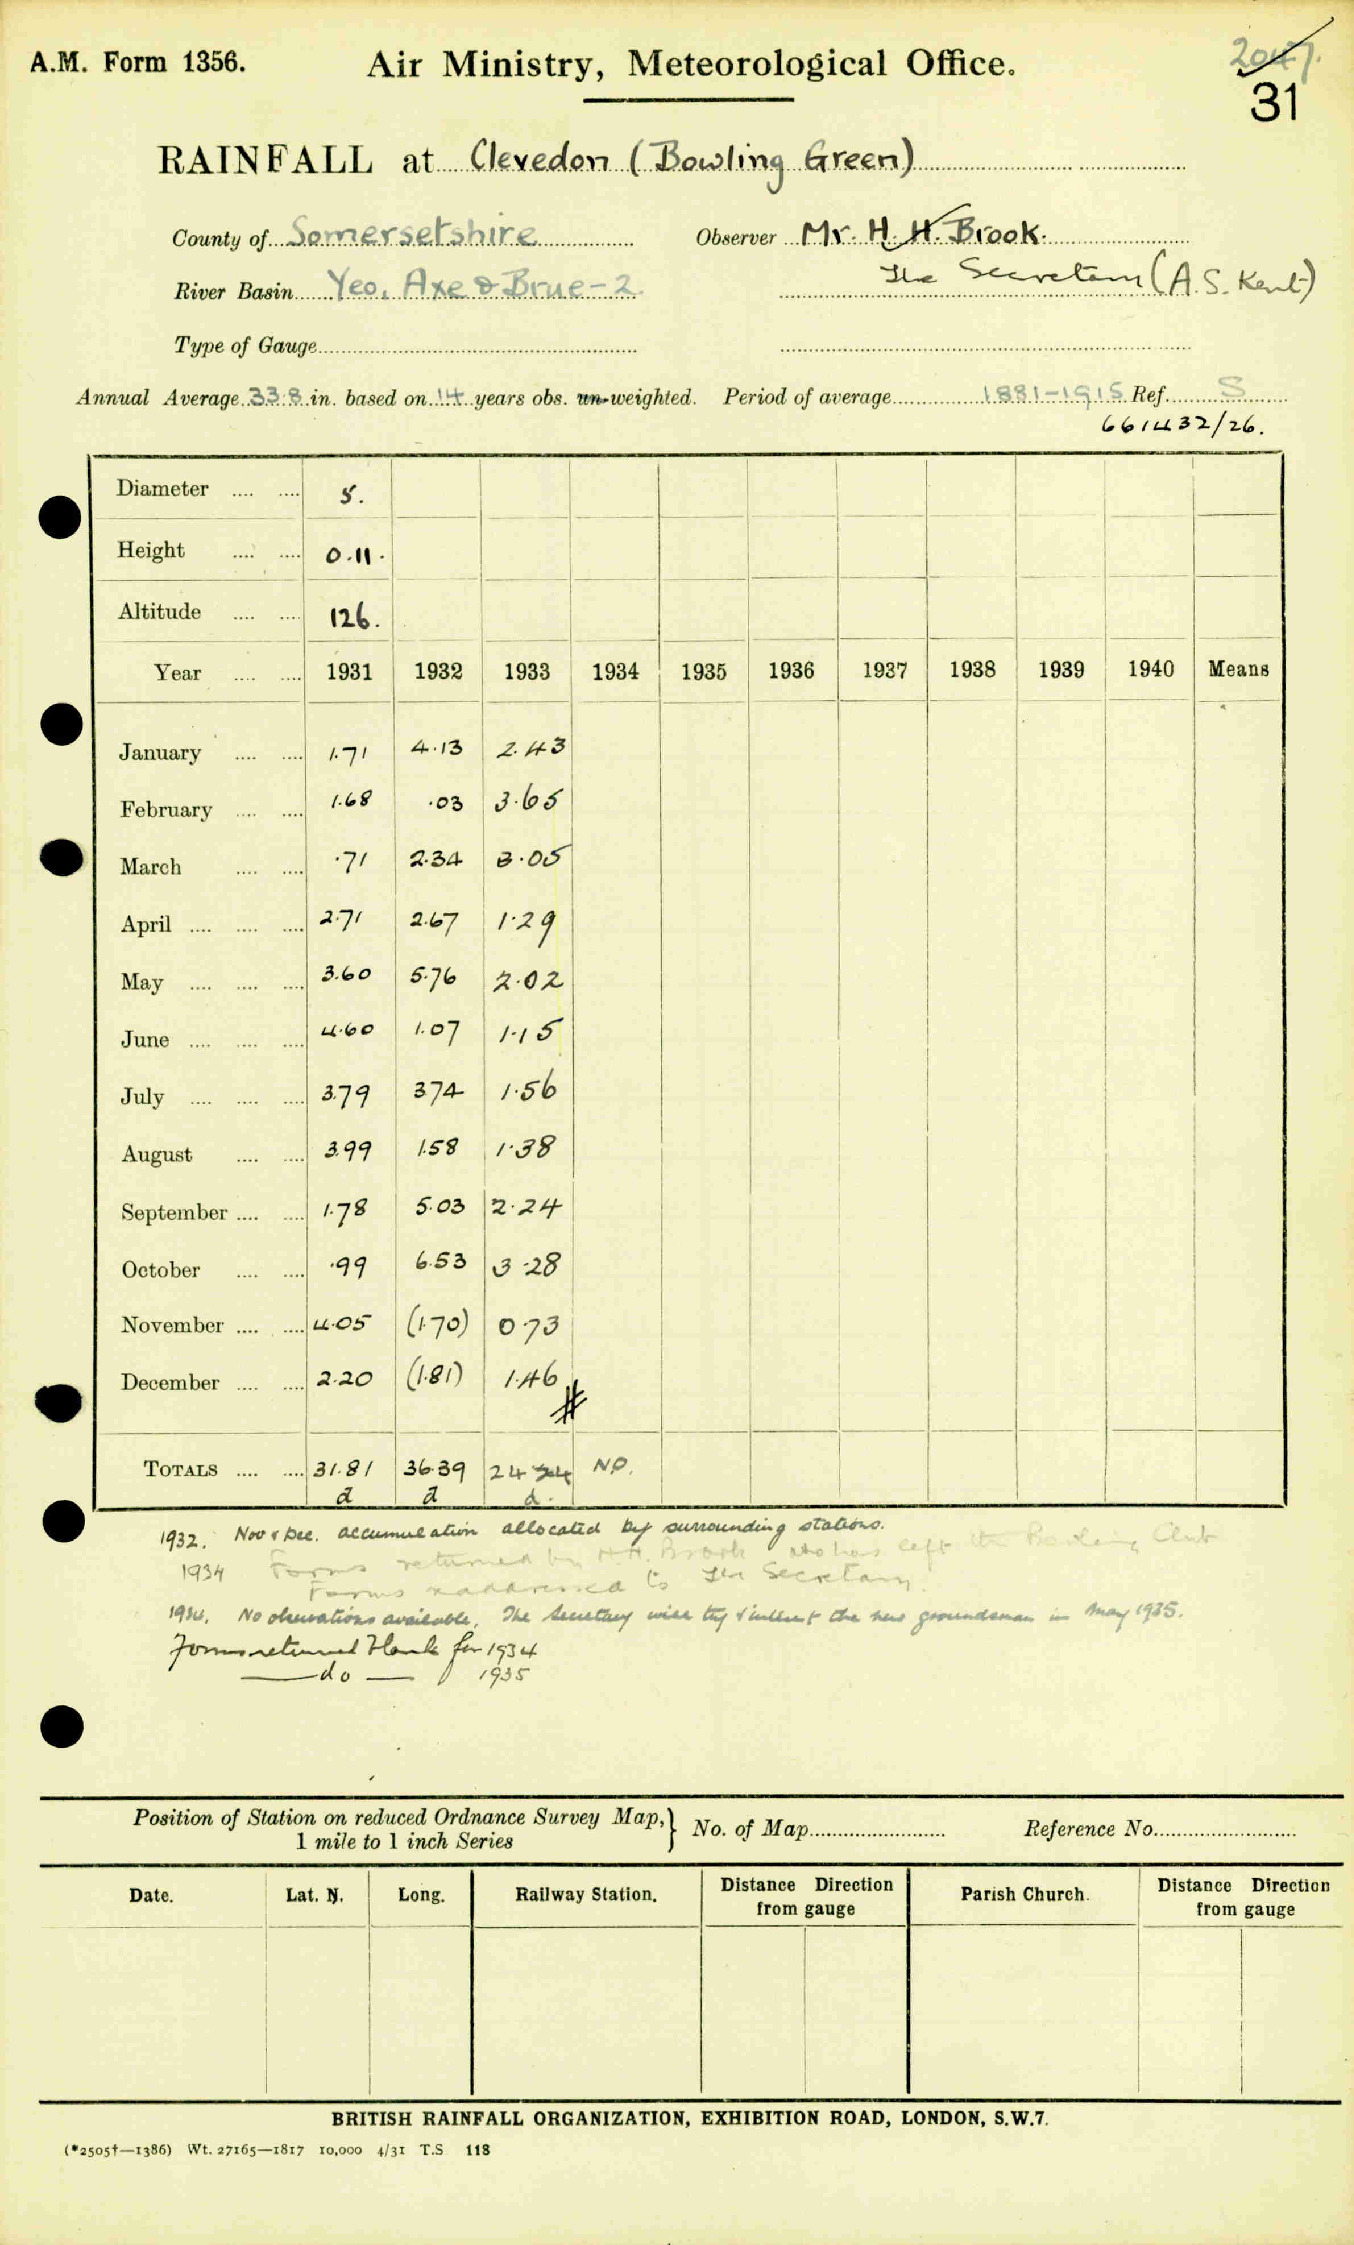 A.M. Form 1356. Air Ministry, Meteorological Office. 2047.
31
RAINFALL at Clevedon (Bowling Green)
County of Somersetshire Observer Mr. H. H. Brook.
River Basin Yeo, Axe & Brue-2. The Secretary (A.S. Kent)
Type of Gauge
Annual Average 33.8 in. based on 14 years obs. un-weighted. Period of average 1881-1915 Ref. S
661432/26.
Diameter .... .... 5.
Height .... .... 0.11.
Altitude .... .... 126.
Year .... .... 1931 1932 1933 1934 1935 1936 1937 1938 1939 1940 Means
January .... .... 1.71 4.13 2.43
February .... .... 1.68 .03 3.65
March .... .... .71 2.34 3.05
April .... .... .... 2.71 2.67 1.29
May .... .... .... 3.60 5.76 2.02
June .... .... .... 4.60 1.07 1.15
July .... .... .... 3.79 3.74 1.56
August .... .... 3.99 1.58 1.38
September .... .... 1.78 5.03 2.24
October .... .... .99 6.53 3.28
November .... .... 4.05 (1.70) 0.73
December .... .... 2.20 (1.81) 1.46
TOTALS .... .... 31.81 36.39 24 24 NO.
d d d.
1932. Nov & Dec. accumulation allocated by surrounding stations.
1934 Forms returned by H.H. Brook who has left the Bowling Club
Forms readdressed to The Secretary.
1934. No observations available. The Secretary will try & interest the new groundsman in May 1935.
Forms returned blank for 1934
do 1935
Position of Station on reduced Ordnance Survey Map, } No. of Map Reference No.
1 mile to 1 inch Series
Date. Lat. N. Long. Railway Station. Distance Direction from gauge Parish Church. Distance Direction from gauge
BRITISH RAINFALL ORGANIZATION, EXHIBITION ROAD, LONDON, S.W.7.
(*2505†—1386) Wt. 27165—1817 10,000 4/31 T.S 118